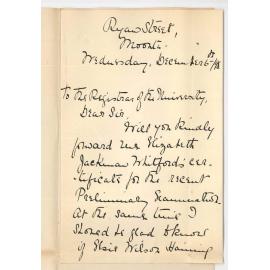 Ryan Street,
Moonta.
Wednesday, December 6th/98
To the Registrar of the University,
Dear Sir.
Will you kindly
forward me Elizabeth
Jackman Whitford's cer-
tificate for the recent
Preliminary Examination
At the same time I
should be glad to know
if Elsie Wilson Haining